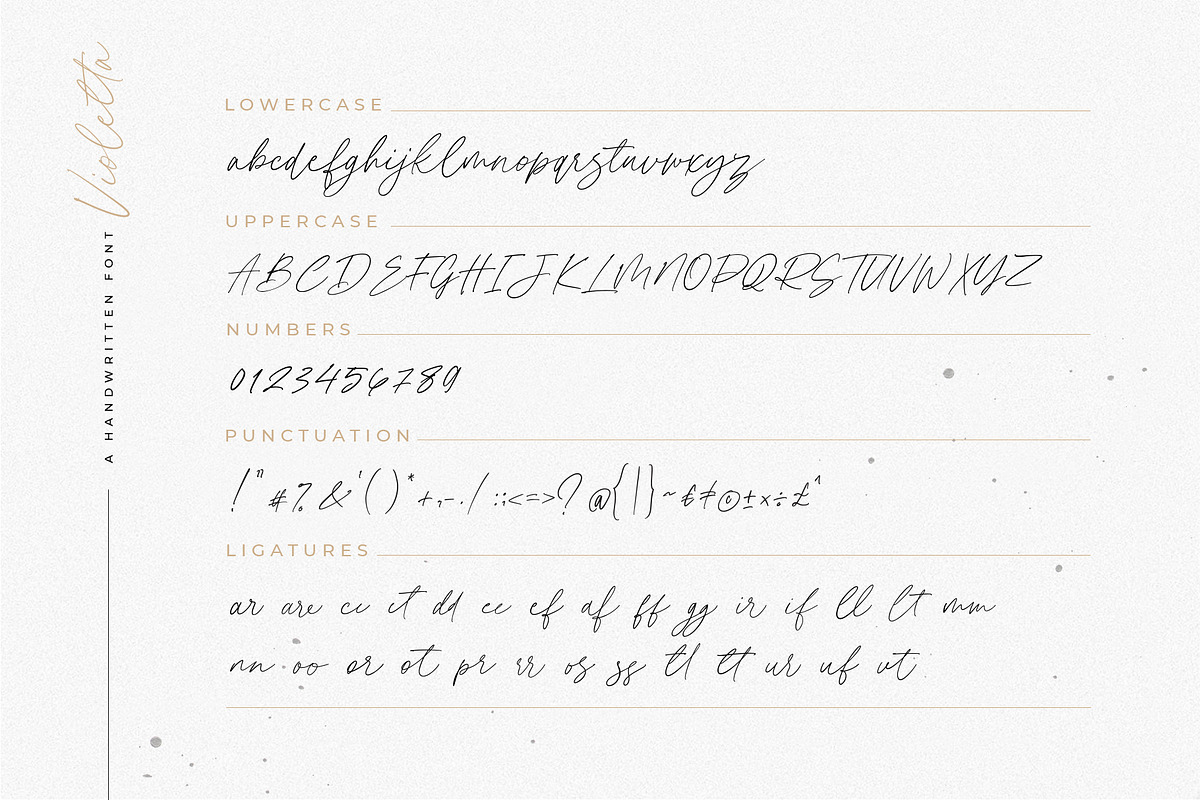 Violetta
A HANDWRITTEN FONT
LOWERCASE
abcdefghijklmnopqrstuvwxyz
UPPERCASE
ABCDEFGHIJKLMNOPQRSTUVWXYZ
NUMBERS
0123456789
PUNCTUATION
!"#%&'()*+,-./:;<=>?@{|}~€≠©±×÷£^
LIGATURES
ar are cc ct dd ee ef af ff gg ir if ll lt mm
nn oo er ot pr rr os ss tl tt ur uf ut